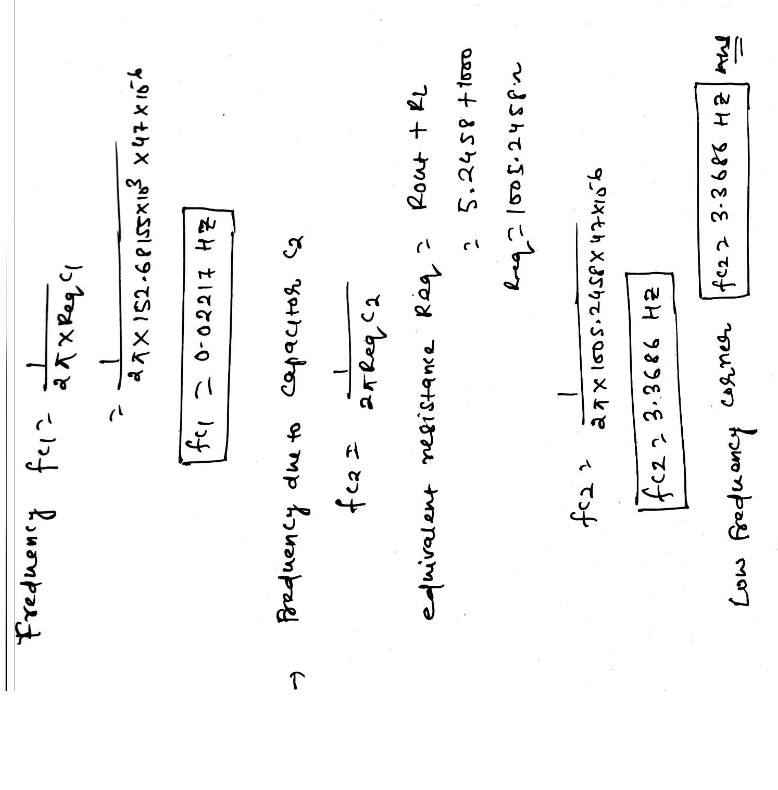 Frequency fc1 = 1 / 2π × Req C1
= 1 / 2π × 152.68155×10^3 × 47×10^-6
fc1 = 0.02217 HZ
→ Frequency due to capacitor C2
fc2 = 1 / 2π Req C2
equivalent resistance Req = Rout + RL
= 5.2458 + 1000
Req = 1005.2458 Ω
fc2 = 1 / 2π × 1005.2458 × 47×10^-6
fc2 = 3.3686 HZ
Low frequency corner fc2 = 3.3686 HZ Ans